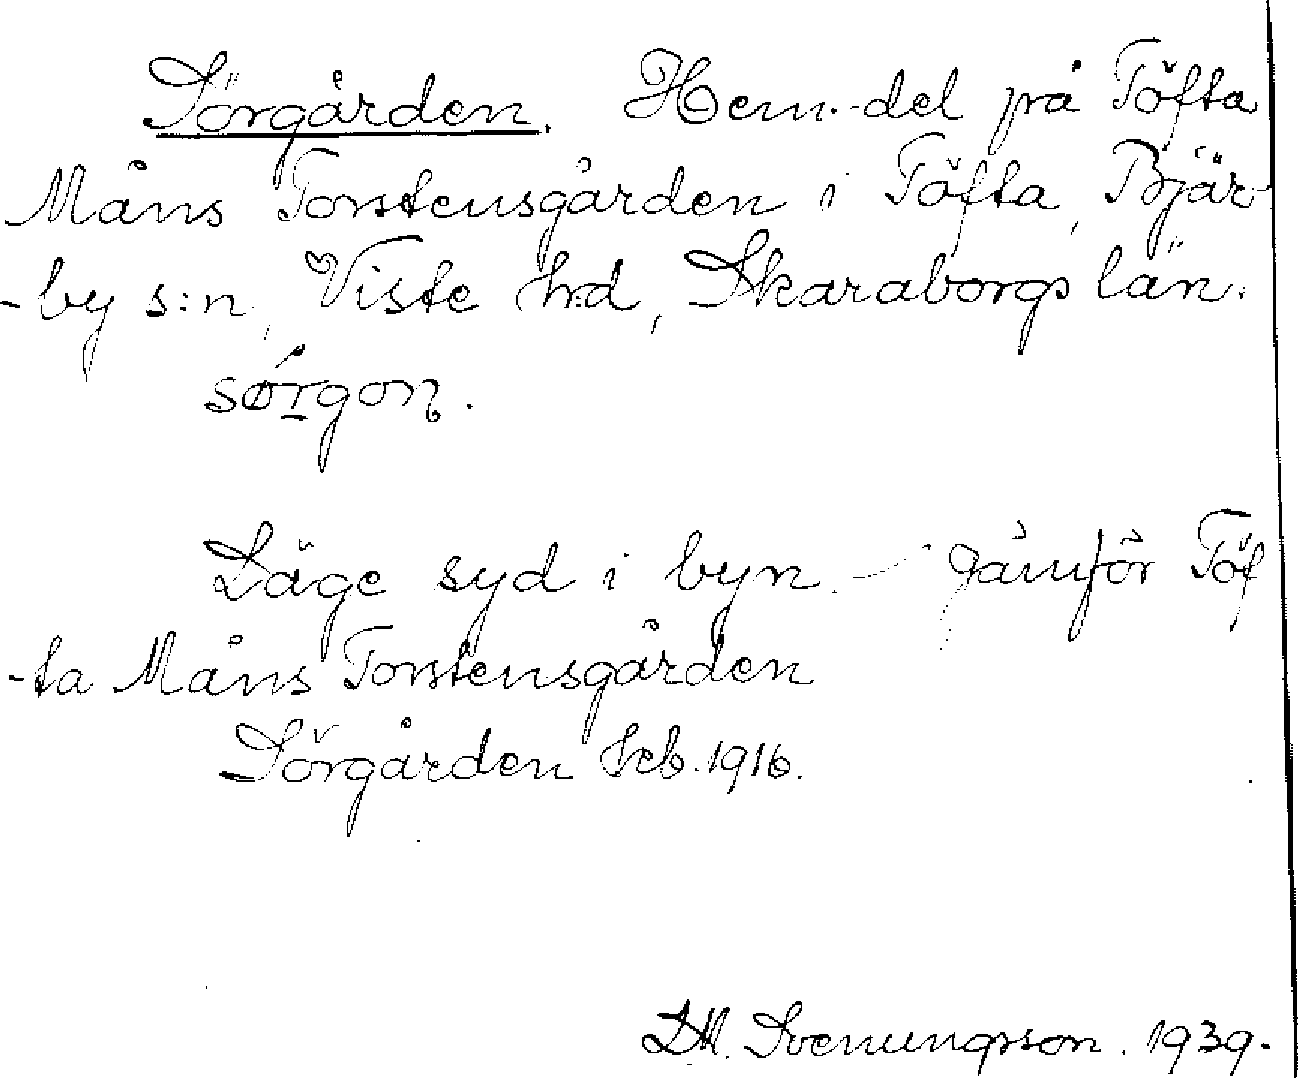 Sörgården. Hem.-del på Töfta
Måns Torstensgården i Töfta, Bjär-
-by s:n, Viste h:d, Skaraborgs län.
sørgon.
Läge syd i byn. - Jämför Töf
-ta Måns Torstensgården
Sörgården Geb. 1916.
D.M. Svenungsson. 1939.